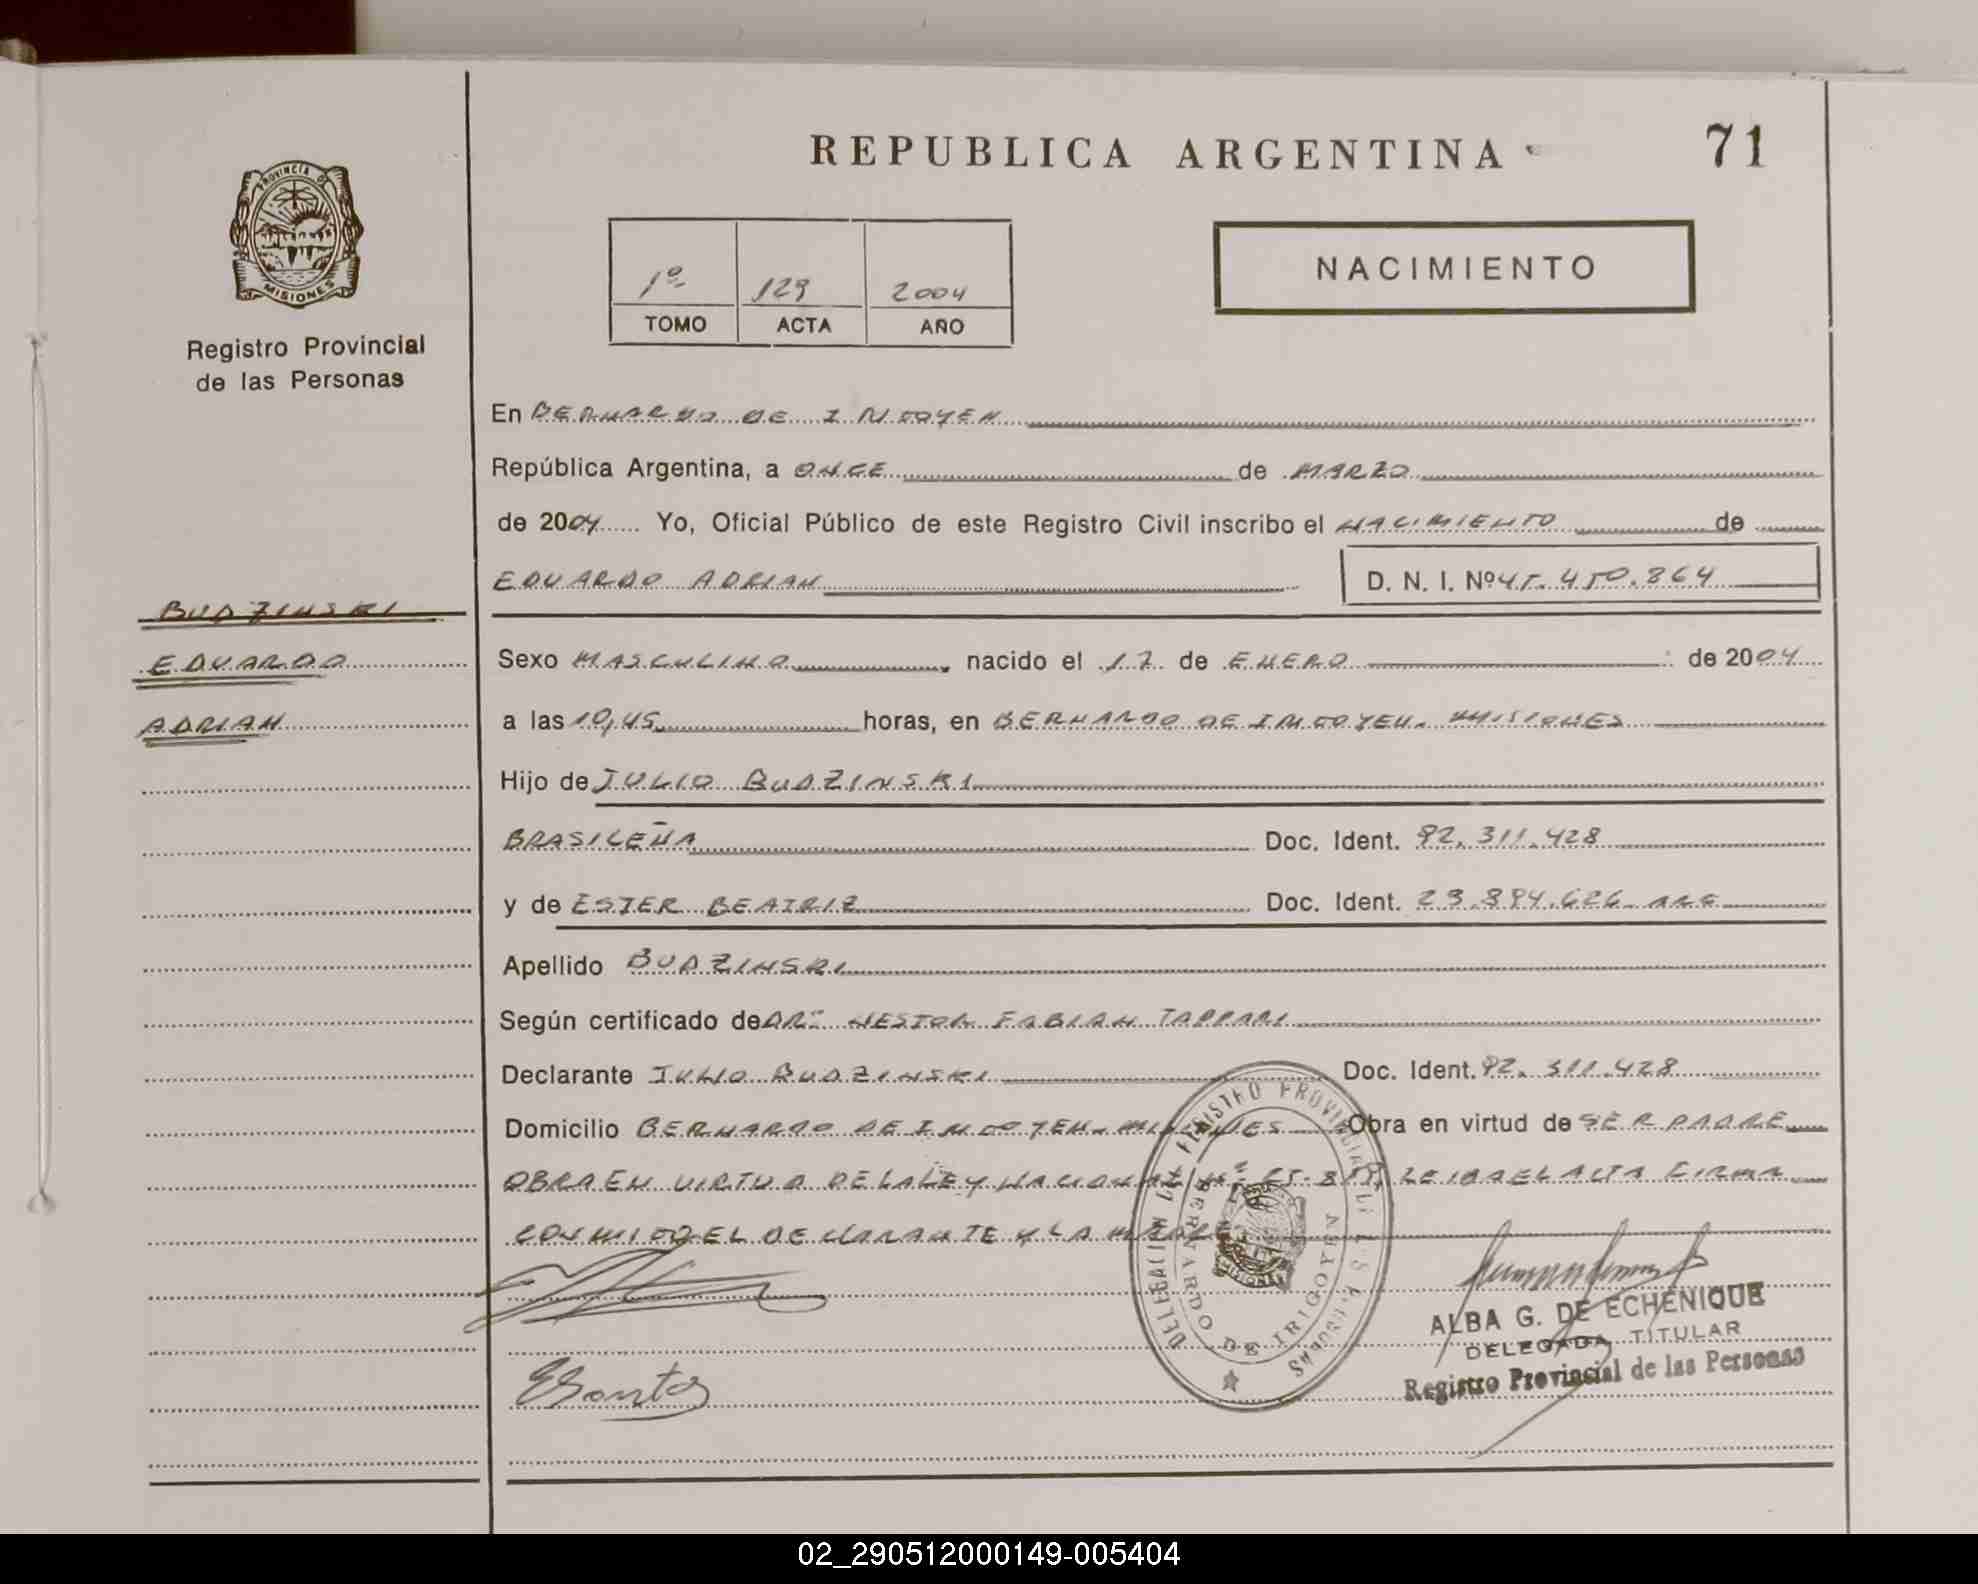 REPUBLICA ARGENTINA
71
PROVINCIA DE
MISIONES
Registro Provincial
de las Personas
1º 129 2004
TOMO ACTA AÑO
NACIMIENTO
En BERNARDO DE IRIGOYEN
República Argentina, a ONCE de MARZO
de 2004 Yo, Oficial Público de este Registro Civil inscribo el NACIMIENTO de
EDUARDO ADRIAN D. N. I. Nº 45.450.864
BUDZINSKI
EDUARDO
ADRIAN
Sexo MASCULINO nacido el 17 de ENERO de 2004
a las 10,45 horas, en BERNARDO DE IRIGOYEN. MISIONES
Hijo de JULIO BUDZINSKI
BRASILEÑA Doc. Ident. 92.311.428
y de ESTER BEATRIZ Doc. Ident. 23.894.626 ARG
Apellido BUDZINSKI
Según certificado de DR. NESTOR FABIAN TAPPARI
Declarante JULIO BUDZINSKI Doc. Ident. 92.311.428
Domicilio BERNARDO DE IRIGOYEN. MISIONES Obra en virtud de SER PADRE
OBRA EN VIRTUD DE LA LEY NACIONAL Nº LEIDA EL ACTA FIRMA
CONMIGO EL DECLARANTE Y LA MADRE
DELEGACION DEL REGISTRO PROVINCIAL DE LAS PERSONAS
BERNARDO DE IRIGOYEN
MISIONES
ESantos
ALBA G. DE ECHENIQUE
DELEGADA TITULAR
Registro Provincial de las Personas
02_290512000149-005404